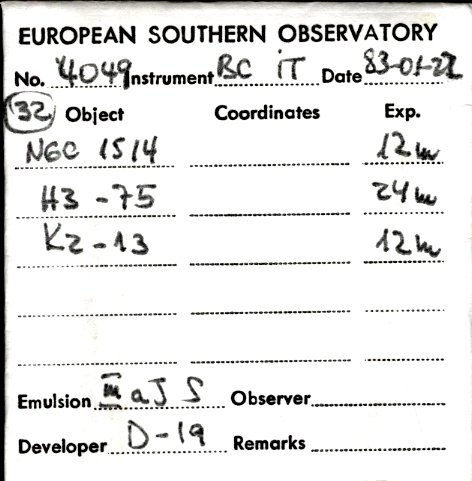 EUROPEAN SOUTHERN OBSERVATORY
No. 4049 Instrument BC IT Date 83-01-22
32 Object Coordinates Exp.
NGC 1514 12m
H3-75 24m
K2-13 12m
Emulsion III aJ S Observer
Developer D-19 Remarks